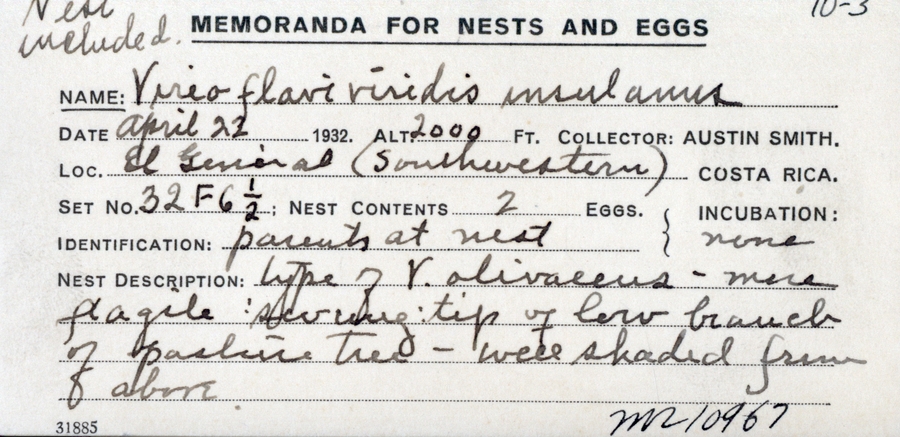 Nest 10-3
included. MEMORANDA FOR NESTS AND EGGS
NAME: Vireo flaviviridis insulanus
DATE April 22 1932. ALT. 2000 FT. COLLECTOR: AUSTIN SMITH.
LOC. El General (Southwestern) COSTA RICA.
SET NO. 32 F6 1/2; NEST CONTENTS 2 EGGS. { INCUBATION:
IDENTIFICATION: parents at nest none
NEST DESCRIPTION: type of V. olivaceus - more
fragile : swung: tip of low branch
of pasture tree - well shaded from
above
31885 10967